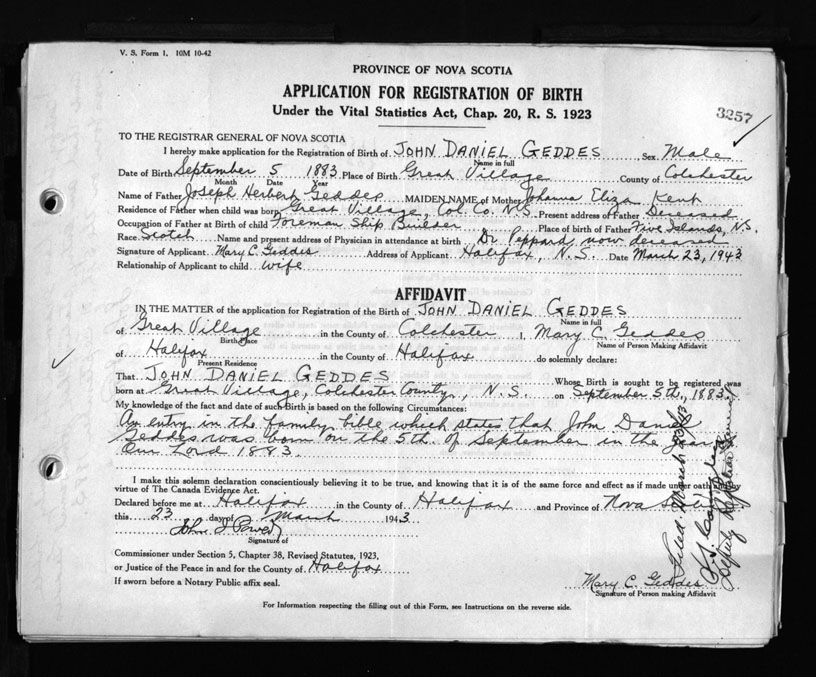 V. S. Form 1. 10M 10-42
PROVINCE OF NOVA SCOTIA
APPLICATION FOR REGISTRATION OF BIRTH
Under the Vital Statistics Act, Chap. 20, R. S. 1923
3257
TO THE REGISTRAR GENERAL OF NOVA SCOTIA
I hereby make application for the Registration of Birth of JOHN DANIEL GEDDES Sex Male
Name in full
Date of Birth September 5 1883 Place of Birth Great Village County of Colchester
Month Date Year
Name of Father Joseph Herbert Geddes MAIDEN NAME of Mother Johanna Eliza Kent
Residence of Father when child was born Great Village, Col. Co. N.S. Present address of Father Deceased
Occupation of Father at Birth of child Foreman Ship Builder Place of birth of Father Five Islands, N.S.
Race Scotch Name and present address of Physician in attendance at birth Dr. Peppard, now deceased
Signature of Applicant Mary C. Geddes Address of Applicant Halifax, N.S. Date March 23, 1943
Relationship of Applicant to child wife
AFFIDAVIT
IN THE MATTER of the application for Registration of the Birth of JOHN DANIEL GEDDES
Name in full
of Great Village in the County of Colchester I, Mary C. Geddes
Birth Place Name of Person Making Affidavit
of Halifax in the County of Halifax do solemnly declare:
Present Residence
That JOHN DANIEL GEDDES Whose Birth is sought to be registered was
born at Great Village, Colchester County, N.S. on September 5th, 1883
My knowledge of the fact and date of such Birth is based on the following Circumstances:
An entry in the family bible which states that John Daniel
Geddes was born on the 5th. of September in the year of
Our Lord 1883.
I make this solemn declaration conscientiously believing it to be true, and knowing that it is of the same force and effect as if made under oath and by
virtue of The Canada Evidence Act.
Declared before me at Halifax in the County of Halifax and Province of Nova Scotia
this 23 day of March 1943
John J Power
Signature of
Commissioner under Section 5, Chapter 38, Revised Statutes, 1923,
or Justice of the Peace in and for the County of Halifax
If sworn before a Notary Public affix seal.
Mary C. Geddes
Signature of Person making Affidavit
For Information respecting the filling out of this Form, see Instructions on the reverse side.
Filed March 23/43
Deputy Registrar General